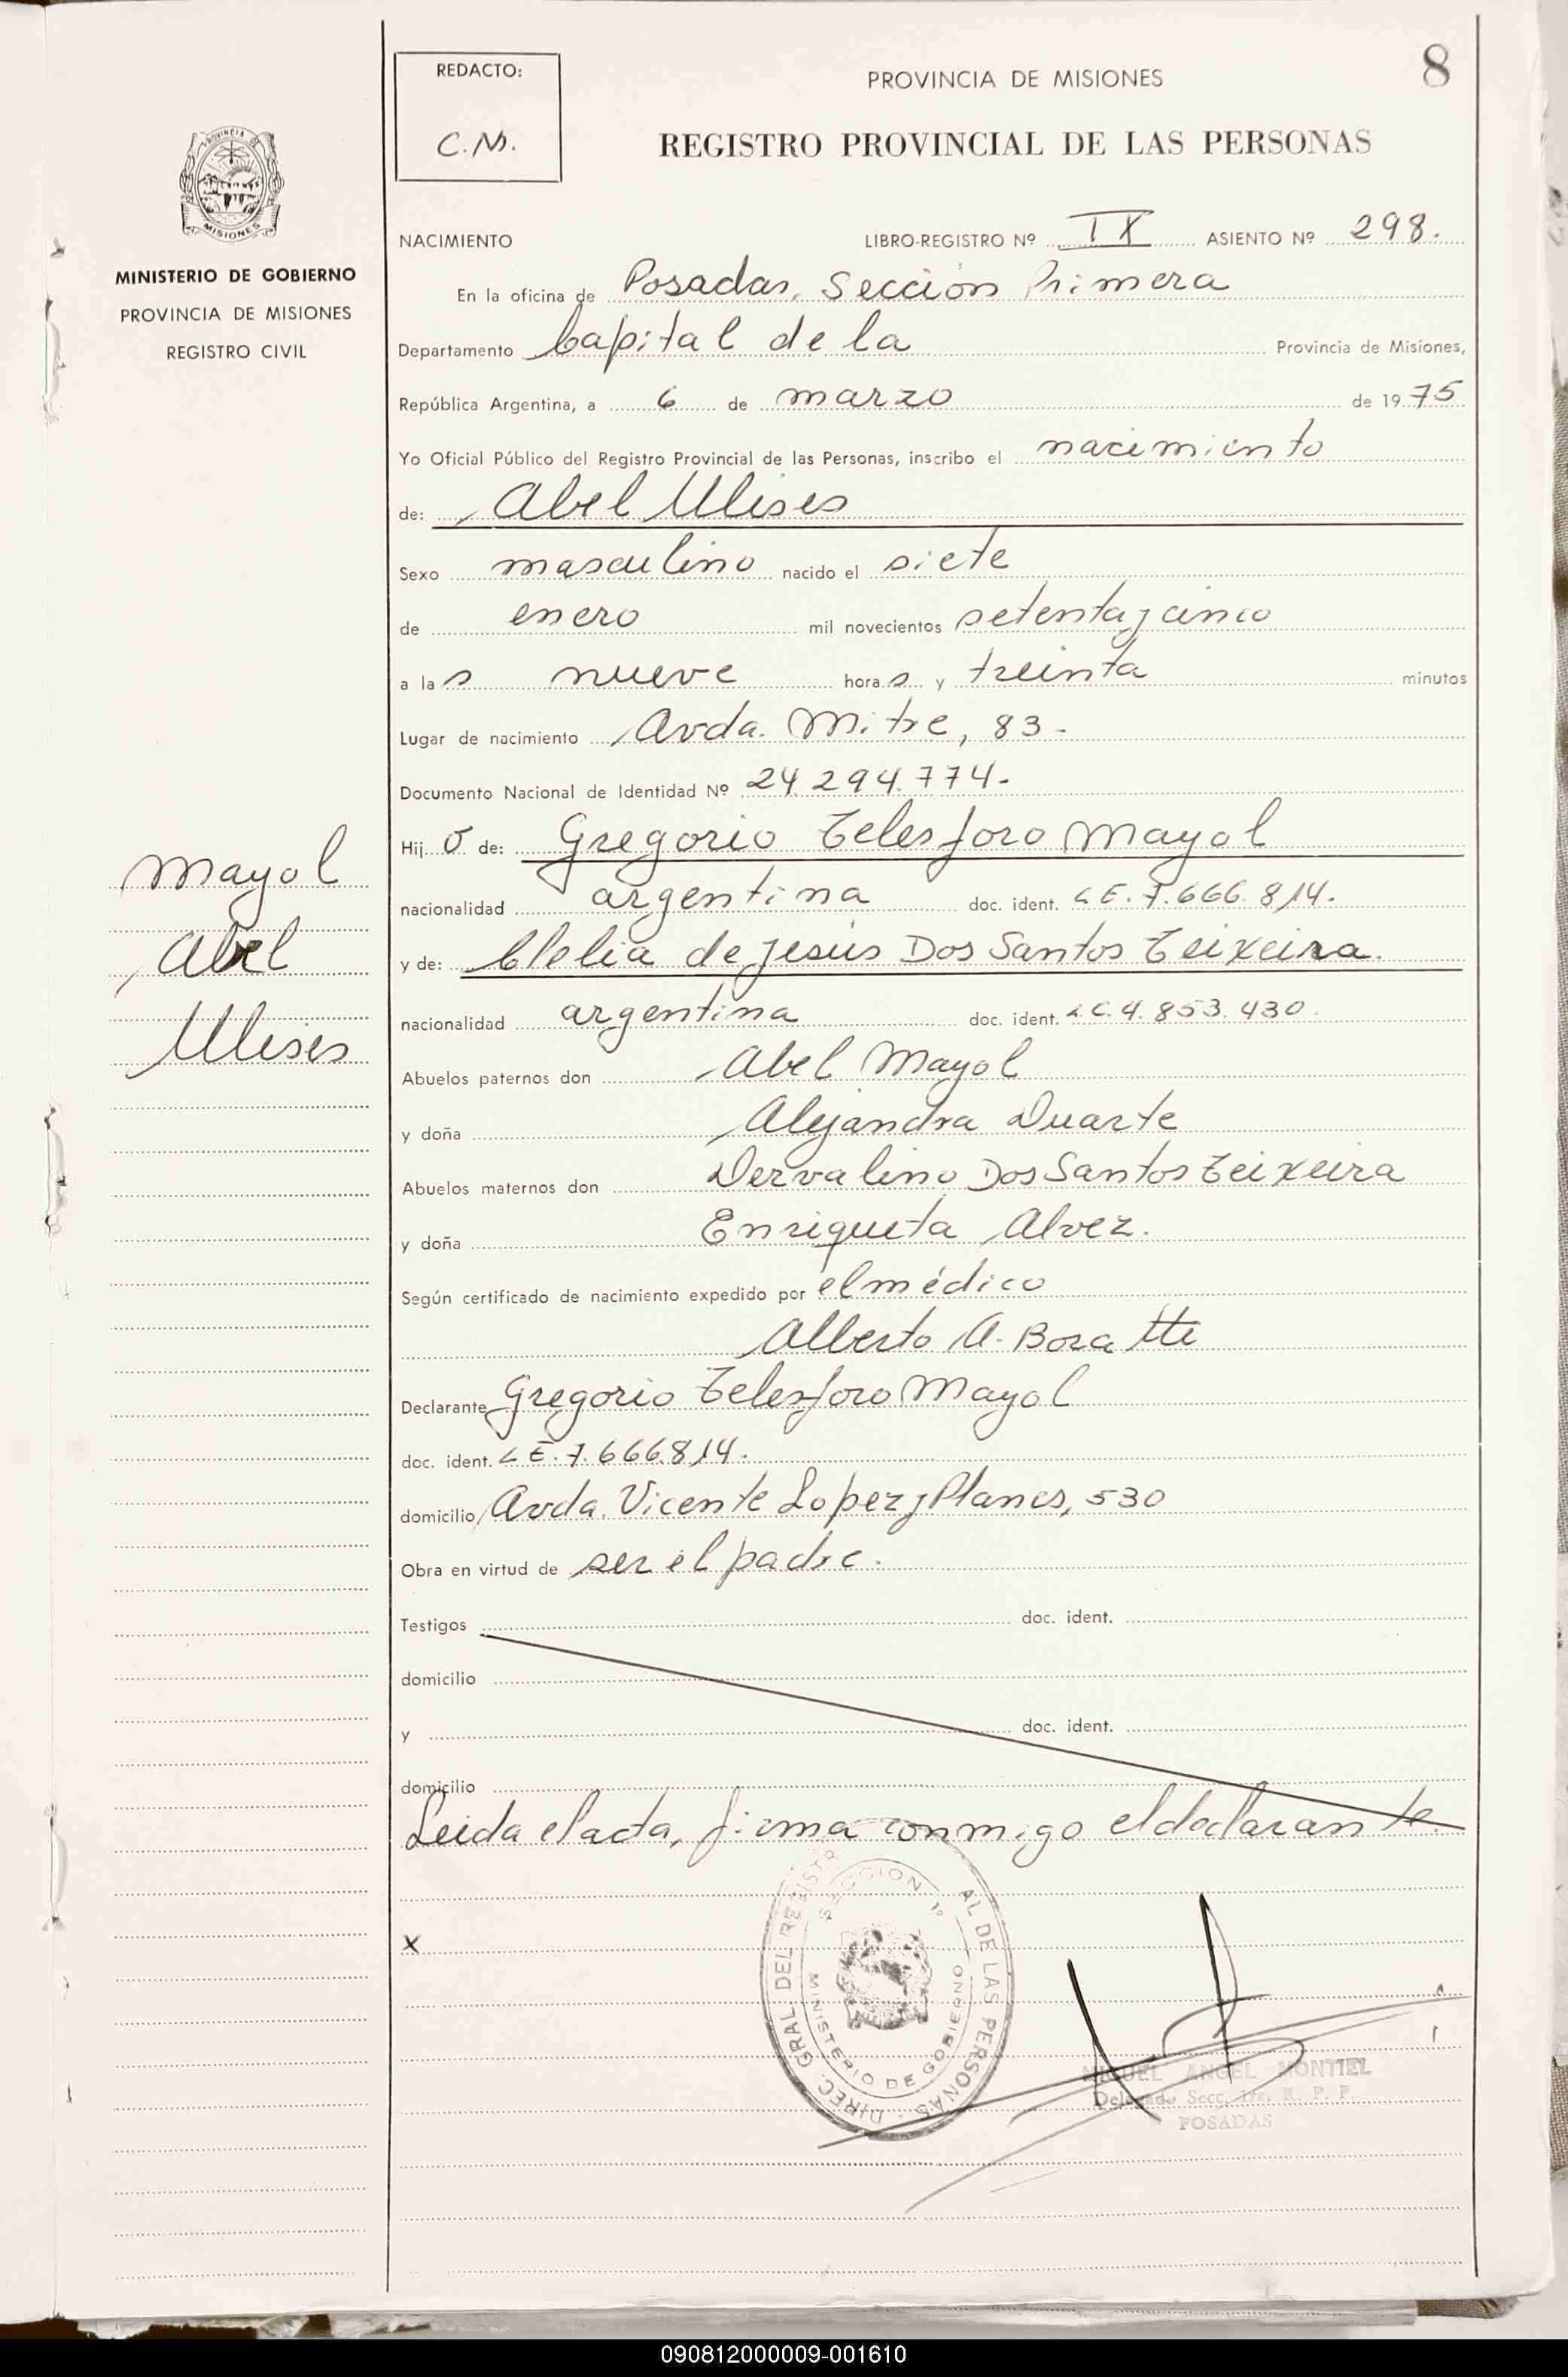 8
REDACTO:
C.M.
PROVINCIA DE MISIONES
REGISTRO PROVINCIAL DE LAS PERSONAS
PROVINCIA DE
MISIONES
MINISTERIO DE GOBIERNO
PROVINCIA DE MISIONES
REGISTRO CIVIL
NACIMIENTO LIBRO-REGISTRO Nº IX ASIENTO Nº 298.
En la oficina de Posadas, Sección Primera
Departamento Capital de la Provincia de Misiones,
República Argentina, a 6 de marzo de 1975
Yo Oficial Público del Registro Provincial de las Personas, inscribo el nacimiento
de: Abel Ulises
Sexo masculino nacido el siete
de enero mil novecientos setenta y cinco
a las nueve horas y treinta minutos
Lugar de nacimiento Avda. Mitre, 83-
Documento Nacional de Identidad Nº 24.294.774-
Hijo de: Gregorio Telesforo Mayol
nacionalidad argentina doc. ident. L.E. 7.666.814.
y de: Clelia de Jesús Dos Santos Teixeira.
nacionalidad argentina doc. ident. L.C. 4.853.430.
Mayol
Abel
Ulises
Abuelos paternos don Abel Mayol
y doña Alejandra Duarte
Abuelos maternos don Dervalino Dos Santos Teixeira
y doña Enriqueta Alvez.
Según certificado de nacimiento expedido por el médico
Alberto A.
Declarante Gregorio Telesforo Mayol
doc. ident. L.E. 7.666.814.
domicilio Avda. Vicente Lopez y Planes, 530
Obra en virtud de ser el padre.
Testigos doc. ident.
domicilio
y doc. ident.
domicilio
Leida el acta, firma conmigo el declarante
x
DIREC. GRAL DEL REGISTR AL DE LAS PERSONAS
SECCION 1º
MINISTERIO DE GOBIERNO
MIGUEL ANGEL MONTIEL
Delegado Secc. 1ra. R. P. P.
POSADAS
090812000009-001610